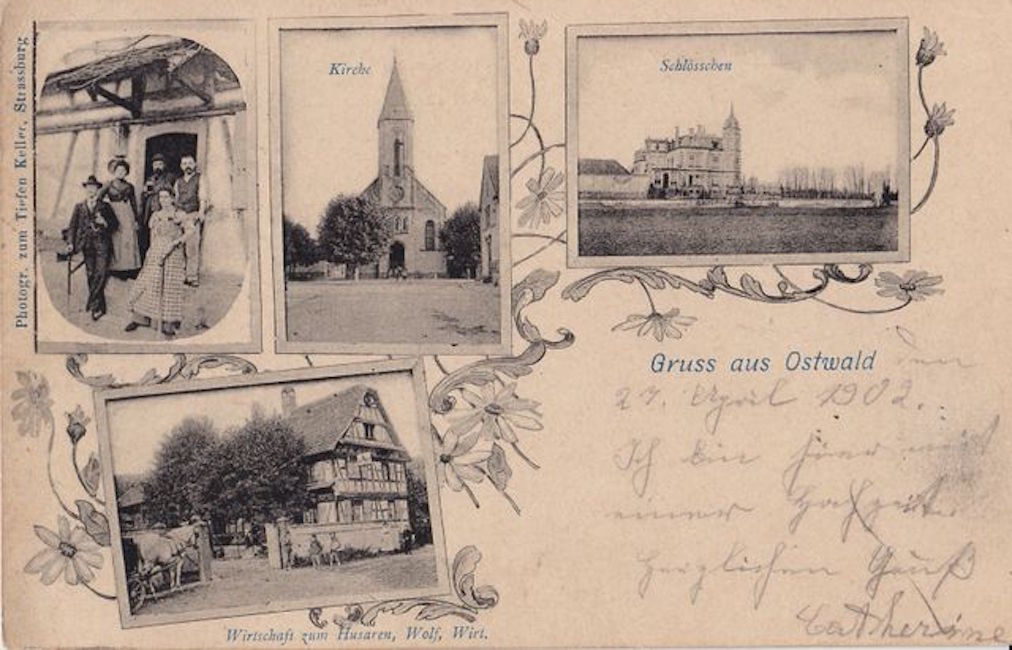 Photogr. zum Tiefen Keller, Strassburg
Kirche
Schlösschen
Gruss aus Ostwald
den
27. April 1902.
Ich bin hier mit
einer
herzlichen Gruß
Catherine
Wirtschaft zum Husaren, Wolf, Wirt.